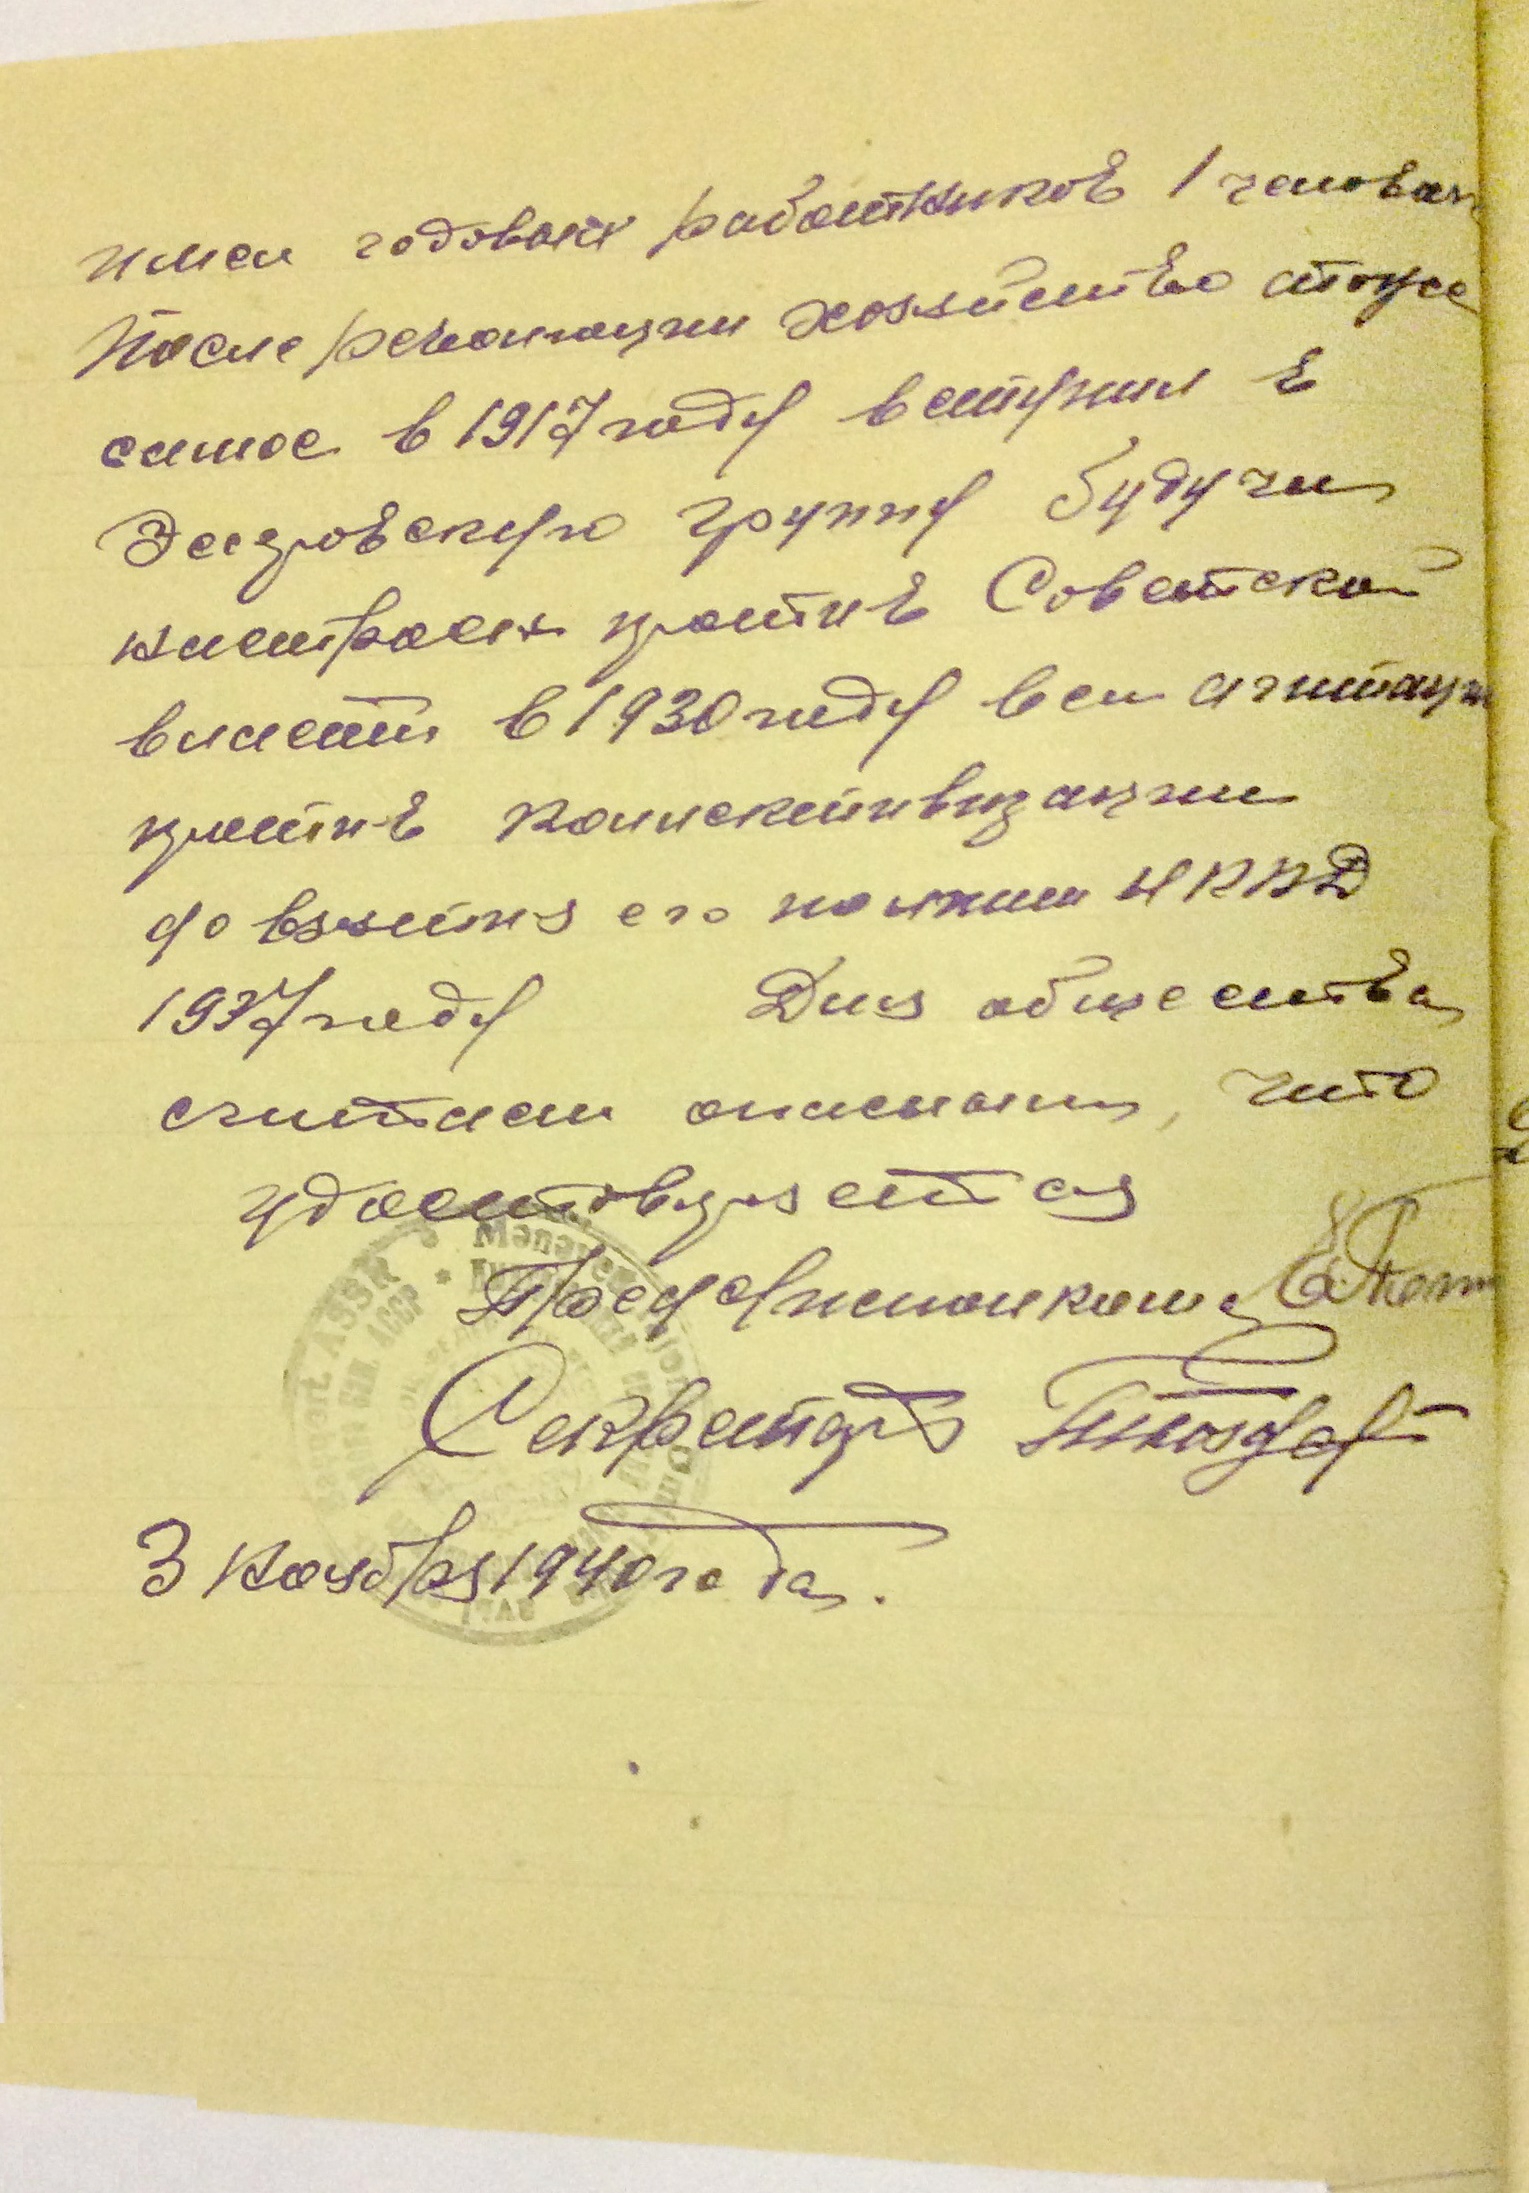 имел годовых работников 1 человек
После революции хозяйство тоже
самое в 1917 году вступил в
Эсеровскую группу будучи
настроен против Советской
власти в 1930 году вел агитаци
против коллективизации
до взятия его органами НКВД
1937 году Для общества
считаем опасным, что
удостоверяется
Пред сельисполкома
Секретарь
3 ноября 1940 года.